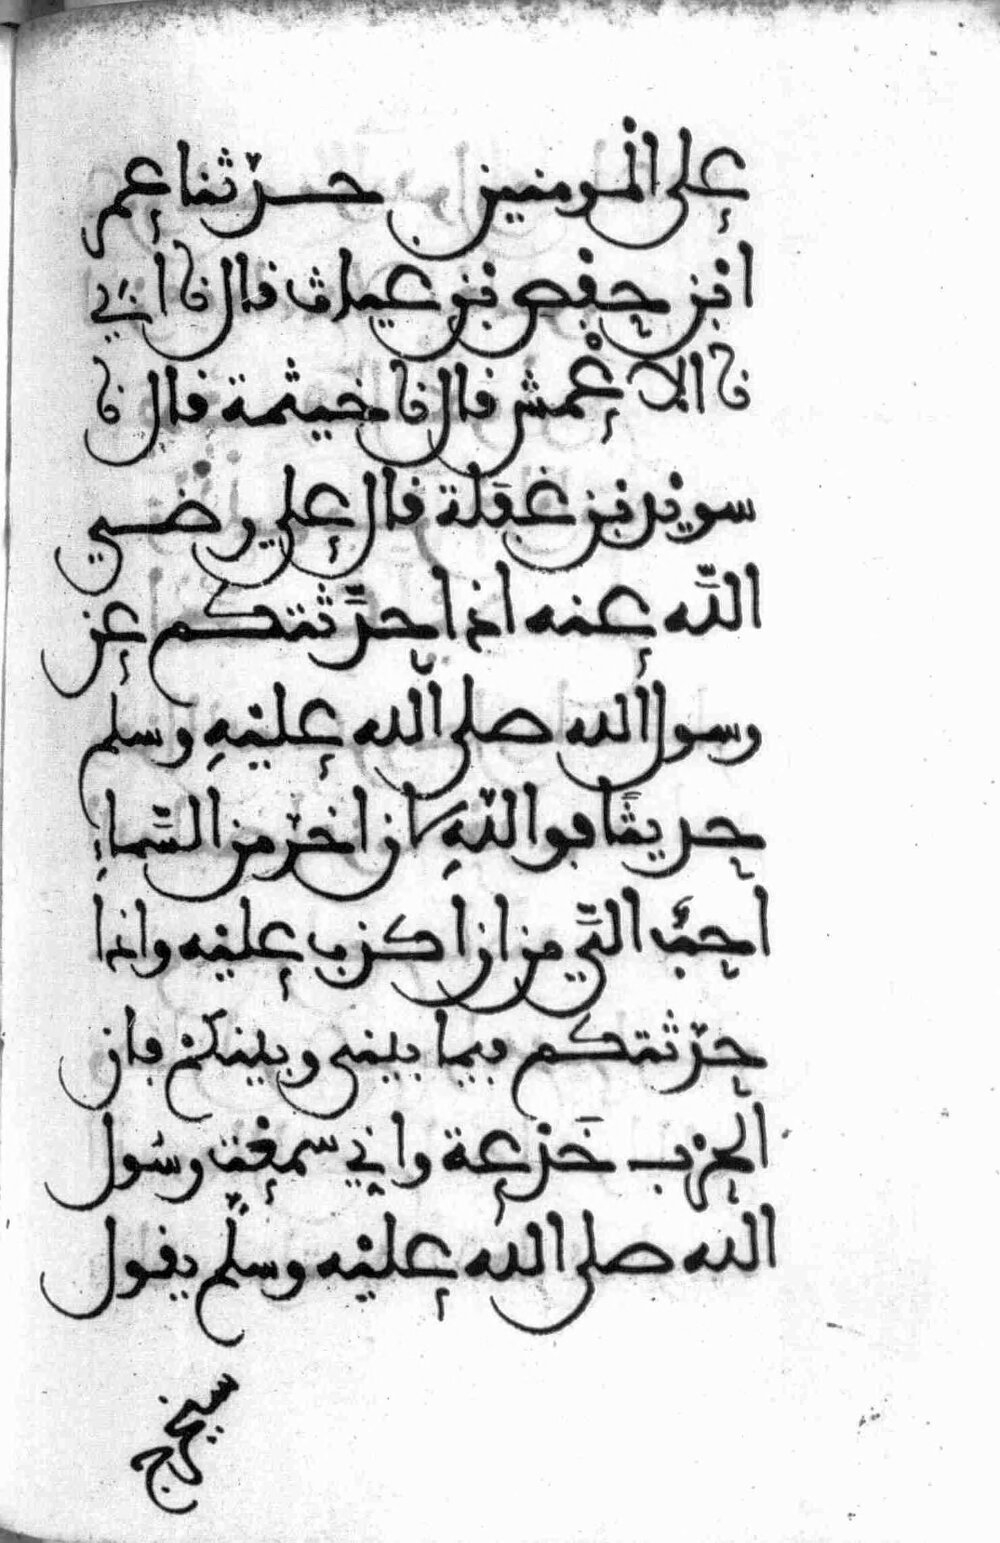 على المومنين حدّثنا عمر
ابن حفص بن غياث قال نا أبي
نا الاعْمش قال نا خيثمة قال نا
سويد بن غفلة قال علي رضي
اللّه عنه اذا حدَّثتكم عن
رسول الله صلى الله عليْهِ وسلم
حديثًا فوالله لان اخرّ من السَّماءِ
احبُّ الَيَّ من ان اكذب عليْه واذا
حدّثتكم فيما بيني وبينكمْ فان
الحرب خَدْعة واني سمعْت رسُول
الله صلى الله عليْه وسلّم يقول
سيخرج